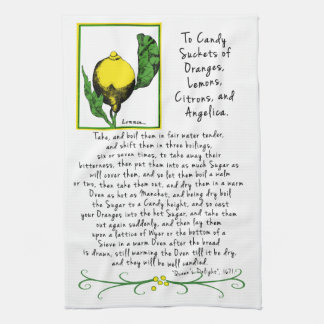 To Candy
Suckets of
Oranges,
Lemons,
Citrons, and
Angelica.
Lemmon.
Take, and boil them in fair water tender,
and shift them in three boilings,
six or seven times, to take away their
bitterness, then put them into as much Sugar as
will cover them, and so let them boil a walm
or two, then take them out, and dry them in a warm
Oven as hot as Manchet, and being dry boil
the Sugar to a Candy height, and so cast
your Oranges into the hot Sugar, and take them
out again suddenly, and then lay them
upon a lattice of Wyer or the bottom of a
Sieve in a warm Oven after the bread
is drawn, still warming the Oven till it be dry,
and they will be well candied.
"Queen's Delight", 1671